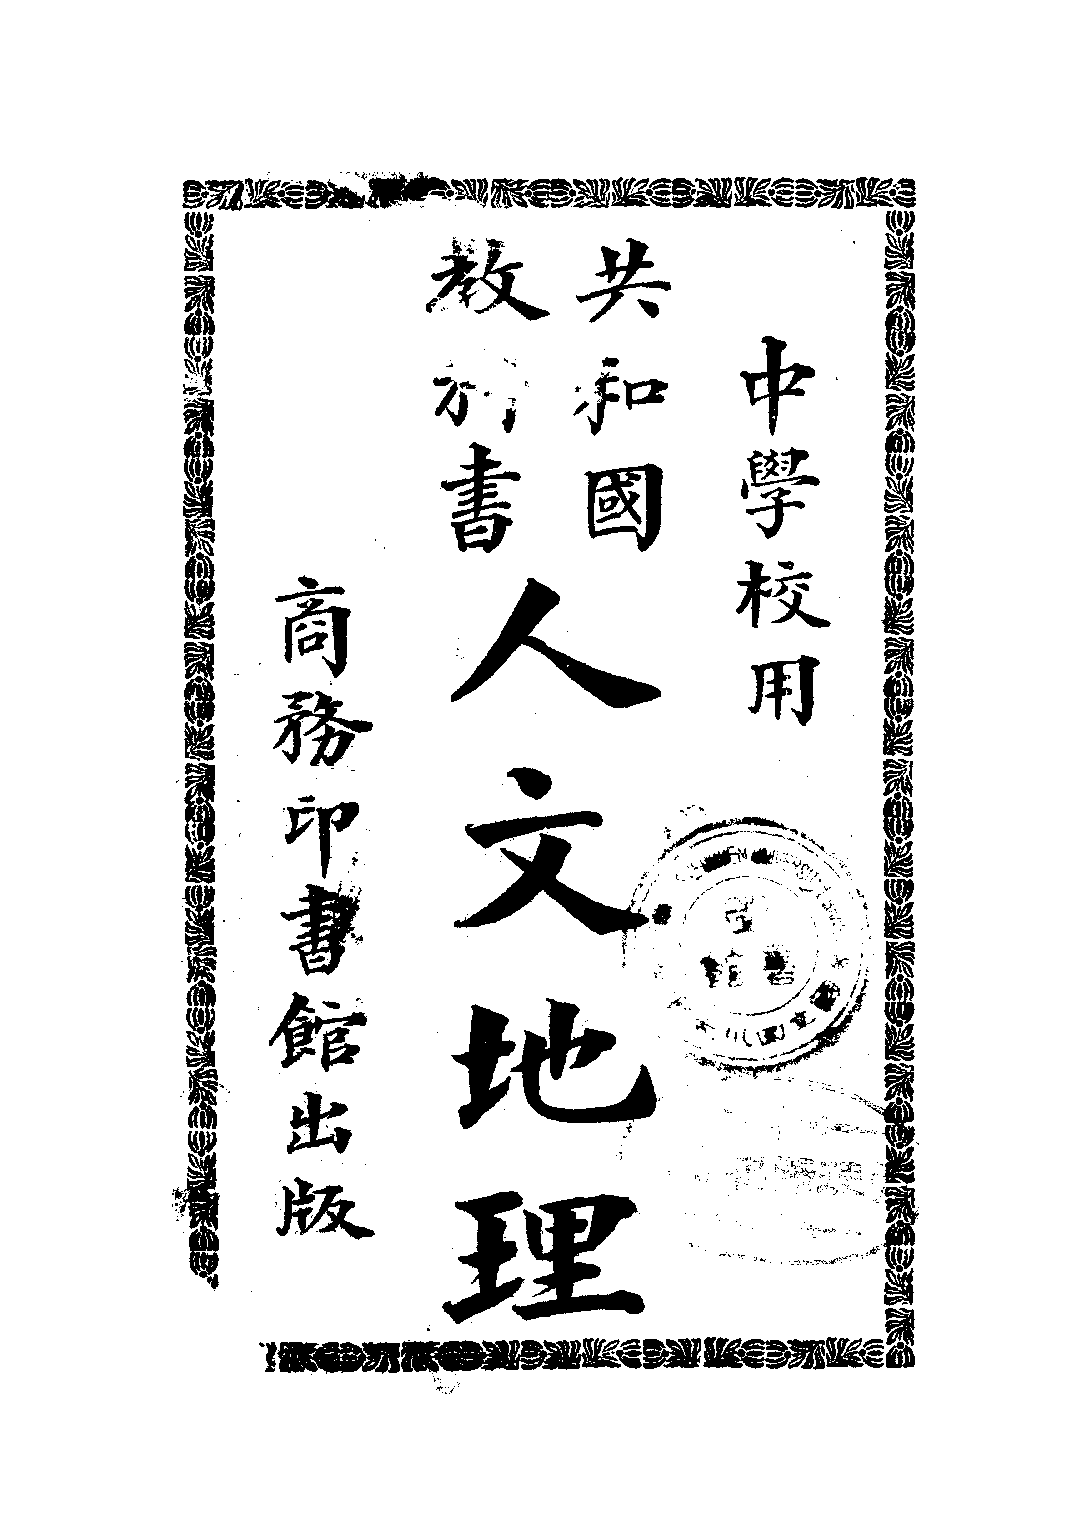 中學校用
共和國
教科書
人文地理
商務印書館出版